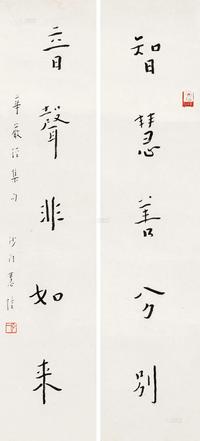 智慧善分別
音聲非如来
華嚴經集句 沙門慧